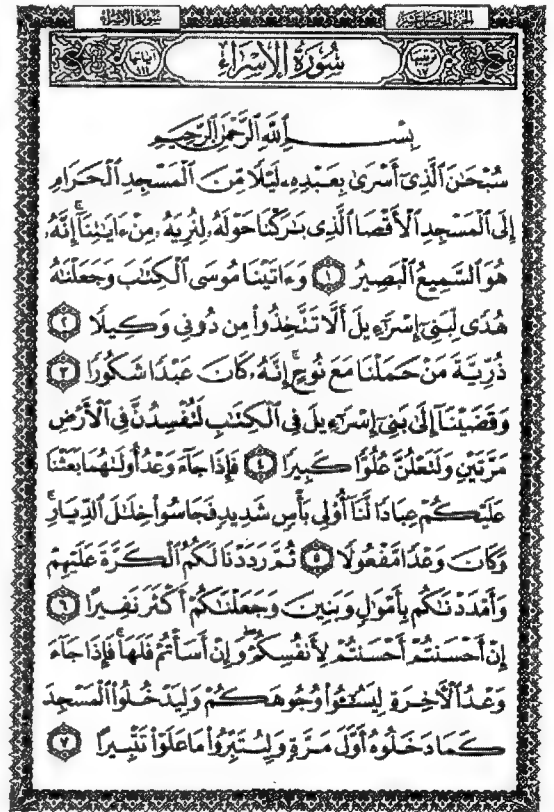 الجزء الخامس عشر سورة الإسراء
ترتيبها ١٧ سُورَةُ الإِسْرَاءِ آياتها ١١١
بِسْمِ ٱللَّهِ ٱلرَّحْمَٰنِ ٱلرَّحِيمِ
سُبْحَٰنَ ٱلَّذِىٓ أَسْرَىٰ بِعَبْدِهِۦ لَيْلًا مِّنَ ٱلْمَسْجِدِ ٱلْحَرَامِ
إِلَى ٱلْمَسْجِدِ ٱلْأَقْصَا ٱلَّذِى بَٰرَكْنَا حَوْلَهُۥ لِنُرِيَهُۥ مِنْ ءَايَٰتِنَآ ۚ إِنَّهُۥ
هُوَ ٱلسَّمِيعُ ٱلْبَصِيرُ ١ وَءَاتَيْنَا مُوسَى ٱلْكِتَٰبَ وَجَعَلْنَٰهُ
هُدًى لِّبَنِىٓ إِسْرَٰٓءِيلَ أَلَّا تَتَّخِذُوا۟ مِن دُونِى وَكِيلًا ٢
ذُرِّيَّةَ مَنْ حَمَلْنَا مَعَ نُوحٍ ۚ إِنَّهُۥ كَانَ عَبْدًا شَكُورًا ٣
وَقَضَيْنَآ إِلَىٰ بَنِىٓ إِسْرَٰٓءِيلَ فِى ٱلْكِتَٰبِ لَتُفْسِدُنَّ فِى ٱلْأَرْضِ
مَرَّتَيْنِ وَلَتَعْلُنَّ عُلُوًّا كَبِيرًا ٤ فَإِذَا جَآءَ وَعْدُ أُولَىٰهُمَا بَعَثْنَا
عَلَيْكُمْ عِبَادًا لَّنَآ أُو۟لِى بَأْسٍ شَدِيدٍ فَجَاسُوا۟ خِلَٰلَ ٱلدِّيَارِ ۚ
وَكَانَ وَعْدًا مَّفْعُولًا ٥ ثُمَّ رَدَدْنَا لَكُمُ ٱلْكَرَّةَ عَلَيْهِمْ
وَأَمْدَدْنَٰكُم بِأَمْوَٰلٍ وَبَنِينَ وَجَعَلْنَٰكُمْ أَكْثَرَ نَفِيرًا ٦
إِنْ أَحْسَنتُمْ أَحْسَنتُمْ لِأَنفُسِكُمْ ۖ وَإِنْ أَسَأْتُمْ فَلَهَا ۚ فَإِذَا جَآءَ
وَعْدُ ٱلْءَاخِرَةِ لِيَسُۥٓـُٔوا۟ وُجُوهَكُمْ وَلِيَدْخُلُوا۟ ٱلْمَسْجِدَ
كَمَا دَخَلُوهُ أَوَّلَ مَرَّةٍ وَلِيُتَبِّرُوا۟ مَا عَلَوْا۟ تَتْبِيرًا ٧